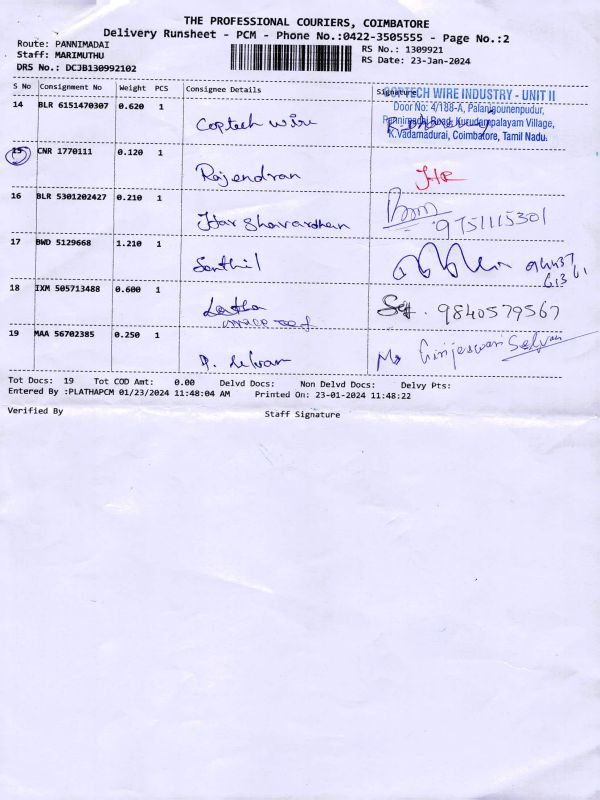 THE PROFESSIONAL COURIERS, COIMBATORE
Delivery Runsheet - PCM - Phone No.:0422-3505555 - Page No.:2
Route: PANNIMADAI
Staff: MARIMUTHU
DRS No.: DCJB130992102
RS No.: 1309921
RS Date: 23-Jan-2024
S No Consignment No Weight PCS Consignee Details Signature
14 BLR 6151470307 0.620 1 Coptech wire
COPTECH WIRE INDUSTRY - UNIT II
Door No: 4/188-A, Palanigounenpudur,
Pannimadai Road, Kurudampalayam Village,
K.Vadamadurai, Coimbatore, Tamil Nadu.
15 CNR 1770111 0.120 1 Rajendran
16 BLR 5301202427 0.210 1 Harshavardhan
9751115301
17 BWD 5129668 1.210 1 Senthil
94437
61361
18 IXM 505713488 0.600 1 Latha
9840579567
19 MAA 56702385 0.250 1 P. Selvam
Tot Docs: 19 Tot COD Amt: 0.00 Delvd Docs: Non Delvd Docs: Delvy Pts:
Entered By :PLATHAPCM 01/23/2024 11:48:04 AM Printed On: 23-01-2024 11:48:22
Verified By Staff Signature